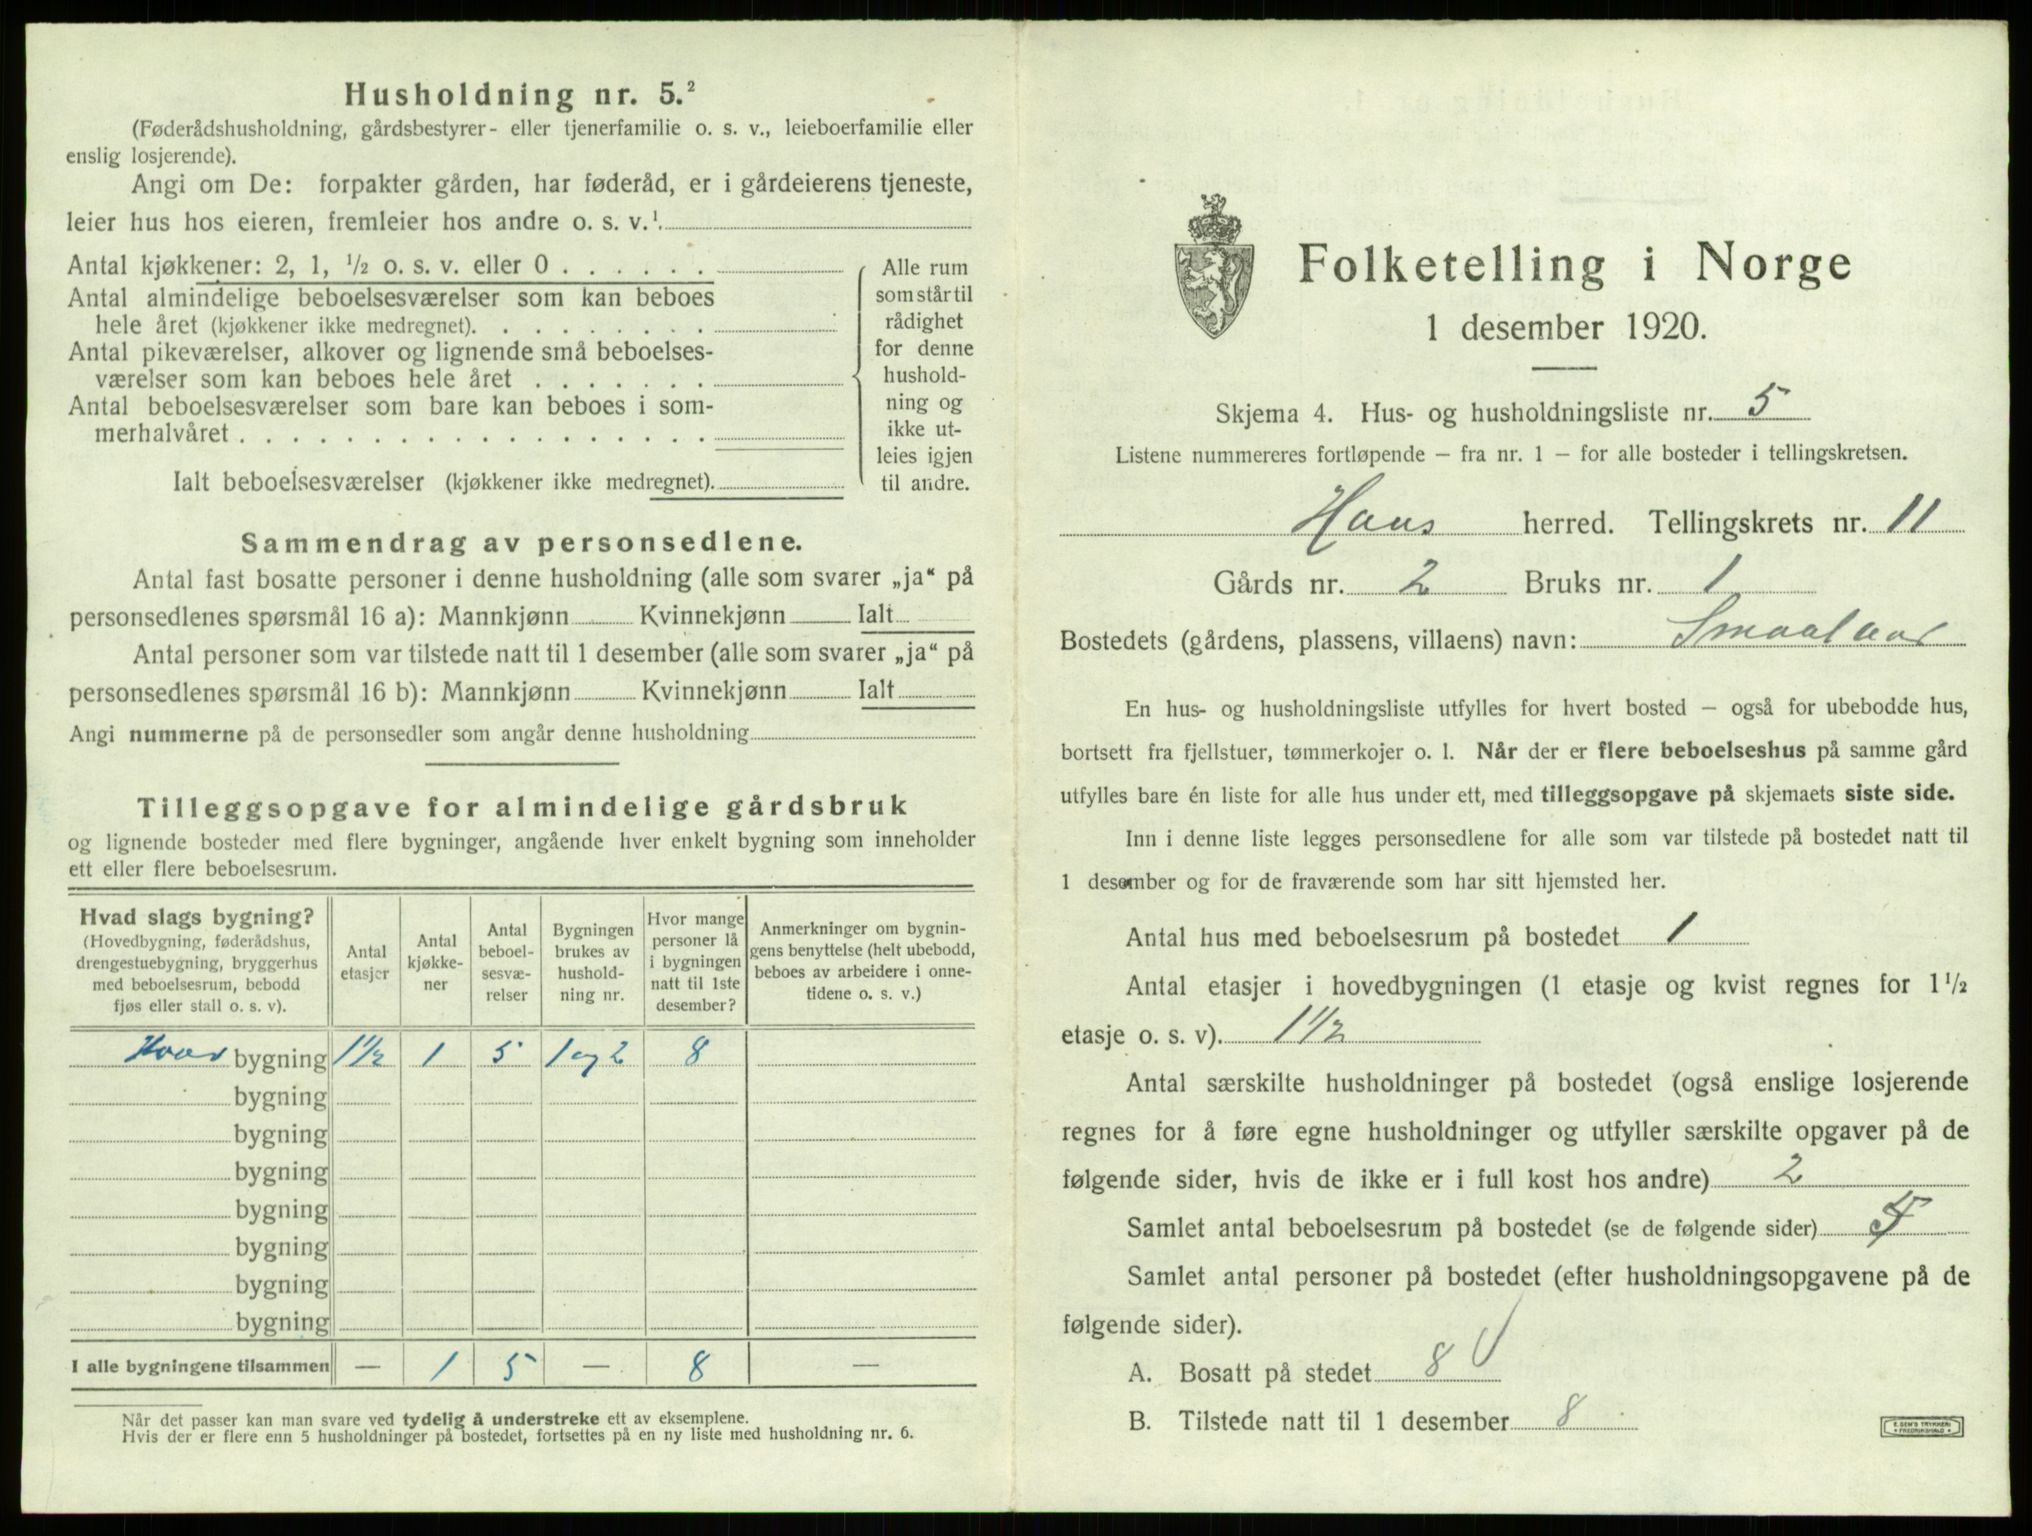 Husholdning nr. 5.²
(Føderådshusholdning, gårdsbestyrer- eller tjenerfamilie o. s. v., leieboerfamilie eller
enslig losjerende).
Angi om De: forpakter gården, har føderåd, er i gårdeierens tjeneste,
leier hus hos eieren, fremleier hos andre o. s. v.¹
Antal kjøkkener: 2, 1, ½ o. s. v. eller 0 . . . . . .
Antal almindelige beboelsesværelser som kan beboes
hele året (kjøkkener ikke medregnet). . . . . . . . .
Antal pikeværelser, alkover og lignende små beboelses-
værelser som kan beboes hele året . . . . . . .
Antal beboelsesværelser som bare kan beboes i som-
merhalvåret . . . . . . . . . . . . . . . . . .
Ialt beboelsesværelser (kjøkkener ikke medregnet).
Alle rum
som står til
rådighet
for denne
hushold-
ning og
ikke ut-
leies igjen
til andre.
Sammendrag av personsedlene.
Antal fast bosatte personer i denne husholdning (alle som svarer „ja“ på
personsedlenes spørsmål 16 a): Mannkjønn Kvinnekjønn Ialt
Antal personer som var tilstede natt til 1 desember (alle som svarer „ja“ på
personsedlenes spørsmål 16 b): Mannkjønn Kvinnekjønn Ialt
Angi nummerne på de personsedler som angår denne husholdning
Tilleggsopgave for almindelige gårdsbruk
og lignende bosteder med flere bygninger, angående hver enkelt bygning som inneholder
ett eller flere beboelsesrum.
Hvad slags bygning?
(Hovedbygning, føderådshus,
drengestuebygning, bryggerhus
med beboelsesrum, bebodd
fjøs eller stall o. s. v).
Antal
etasjer
Antal
kjøkke-
ner
Antal
beboel-
sesvæ-
relser
Bygningen
brukes av
hushold-
ning nr.
Hvor mange
personer lå
i bygningen
natt til 1ste
desember?
Anmerkninger om bygnin-
gens benyttelse (helt ubebodd,
beboes av arbeidere i onne-
tidene o. s. v.)
bygning 1½ 1 5 1 og 2 8
bygning
bygning
bygning
bygning
bygning
bygning
bygning
I alle bygningene tilsammen — 1 5 — 8 —
Når det passer kan man svare ved tydelig å understreke ett av eksemplene.
Hvis der er flere enn 5 husholdninger på bostedet, fortsettes på en ny liste med husholdning nr. 6.
Folketelling i Norge
1 desember 1920.
Skjema 4. Hus- og husholdningsliste nr. 5
Listene nummereres fortløpende – fra nr. 1 – for alle bosteder i tellingskretsen.
Haus herred. Tellingskrets nr. 11
Gårds nr. 2 Bruks nr. 1
Bostedets (gårdens, plassens, villaens) navn: Smaalaar
En hus- og husholdningsliste utfylles for hvert bosted – også for ubebodde hus,
bortsett fra fjellstuer, tømmerkojer o. l. Når der er flere beboelseshus på samme gård
utfylles bare én liste for alle hus under ett, med tilleggsopgave på skjemaets siste side.
Inn i denne liste legges personsedlene for alle som var tilstede på bostedet natt til
1 desember og for de fraværende som har sitt hjemsted her.
Antal hus med beboelsesrum på bostedet 1
Antal etasjer i hovedbygningen (1 etasje og kvist regnes for 1½
etasje o. s. v). 1½
Antal særskilte husholdninger på bostedet (også enslige losjerende
regnes for å føre egne husholdninger og utfyller særskilte opgaver på de
følgende sider, hvis de ikke er i full kost hos andre) 2
Samlet antal beboelsesrum på bostedet (se de følgende sider) 5
Samlet antal personer på bostedet (efter husholdningsopgavene på de
følgende sider).
A. Bosatt på stedet 8
B. Tilstede natt til 1 desember 8
E. SEM'S TRYKKERI
FREDRIKSHALD